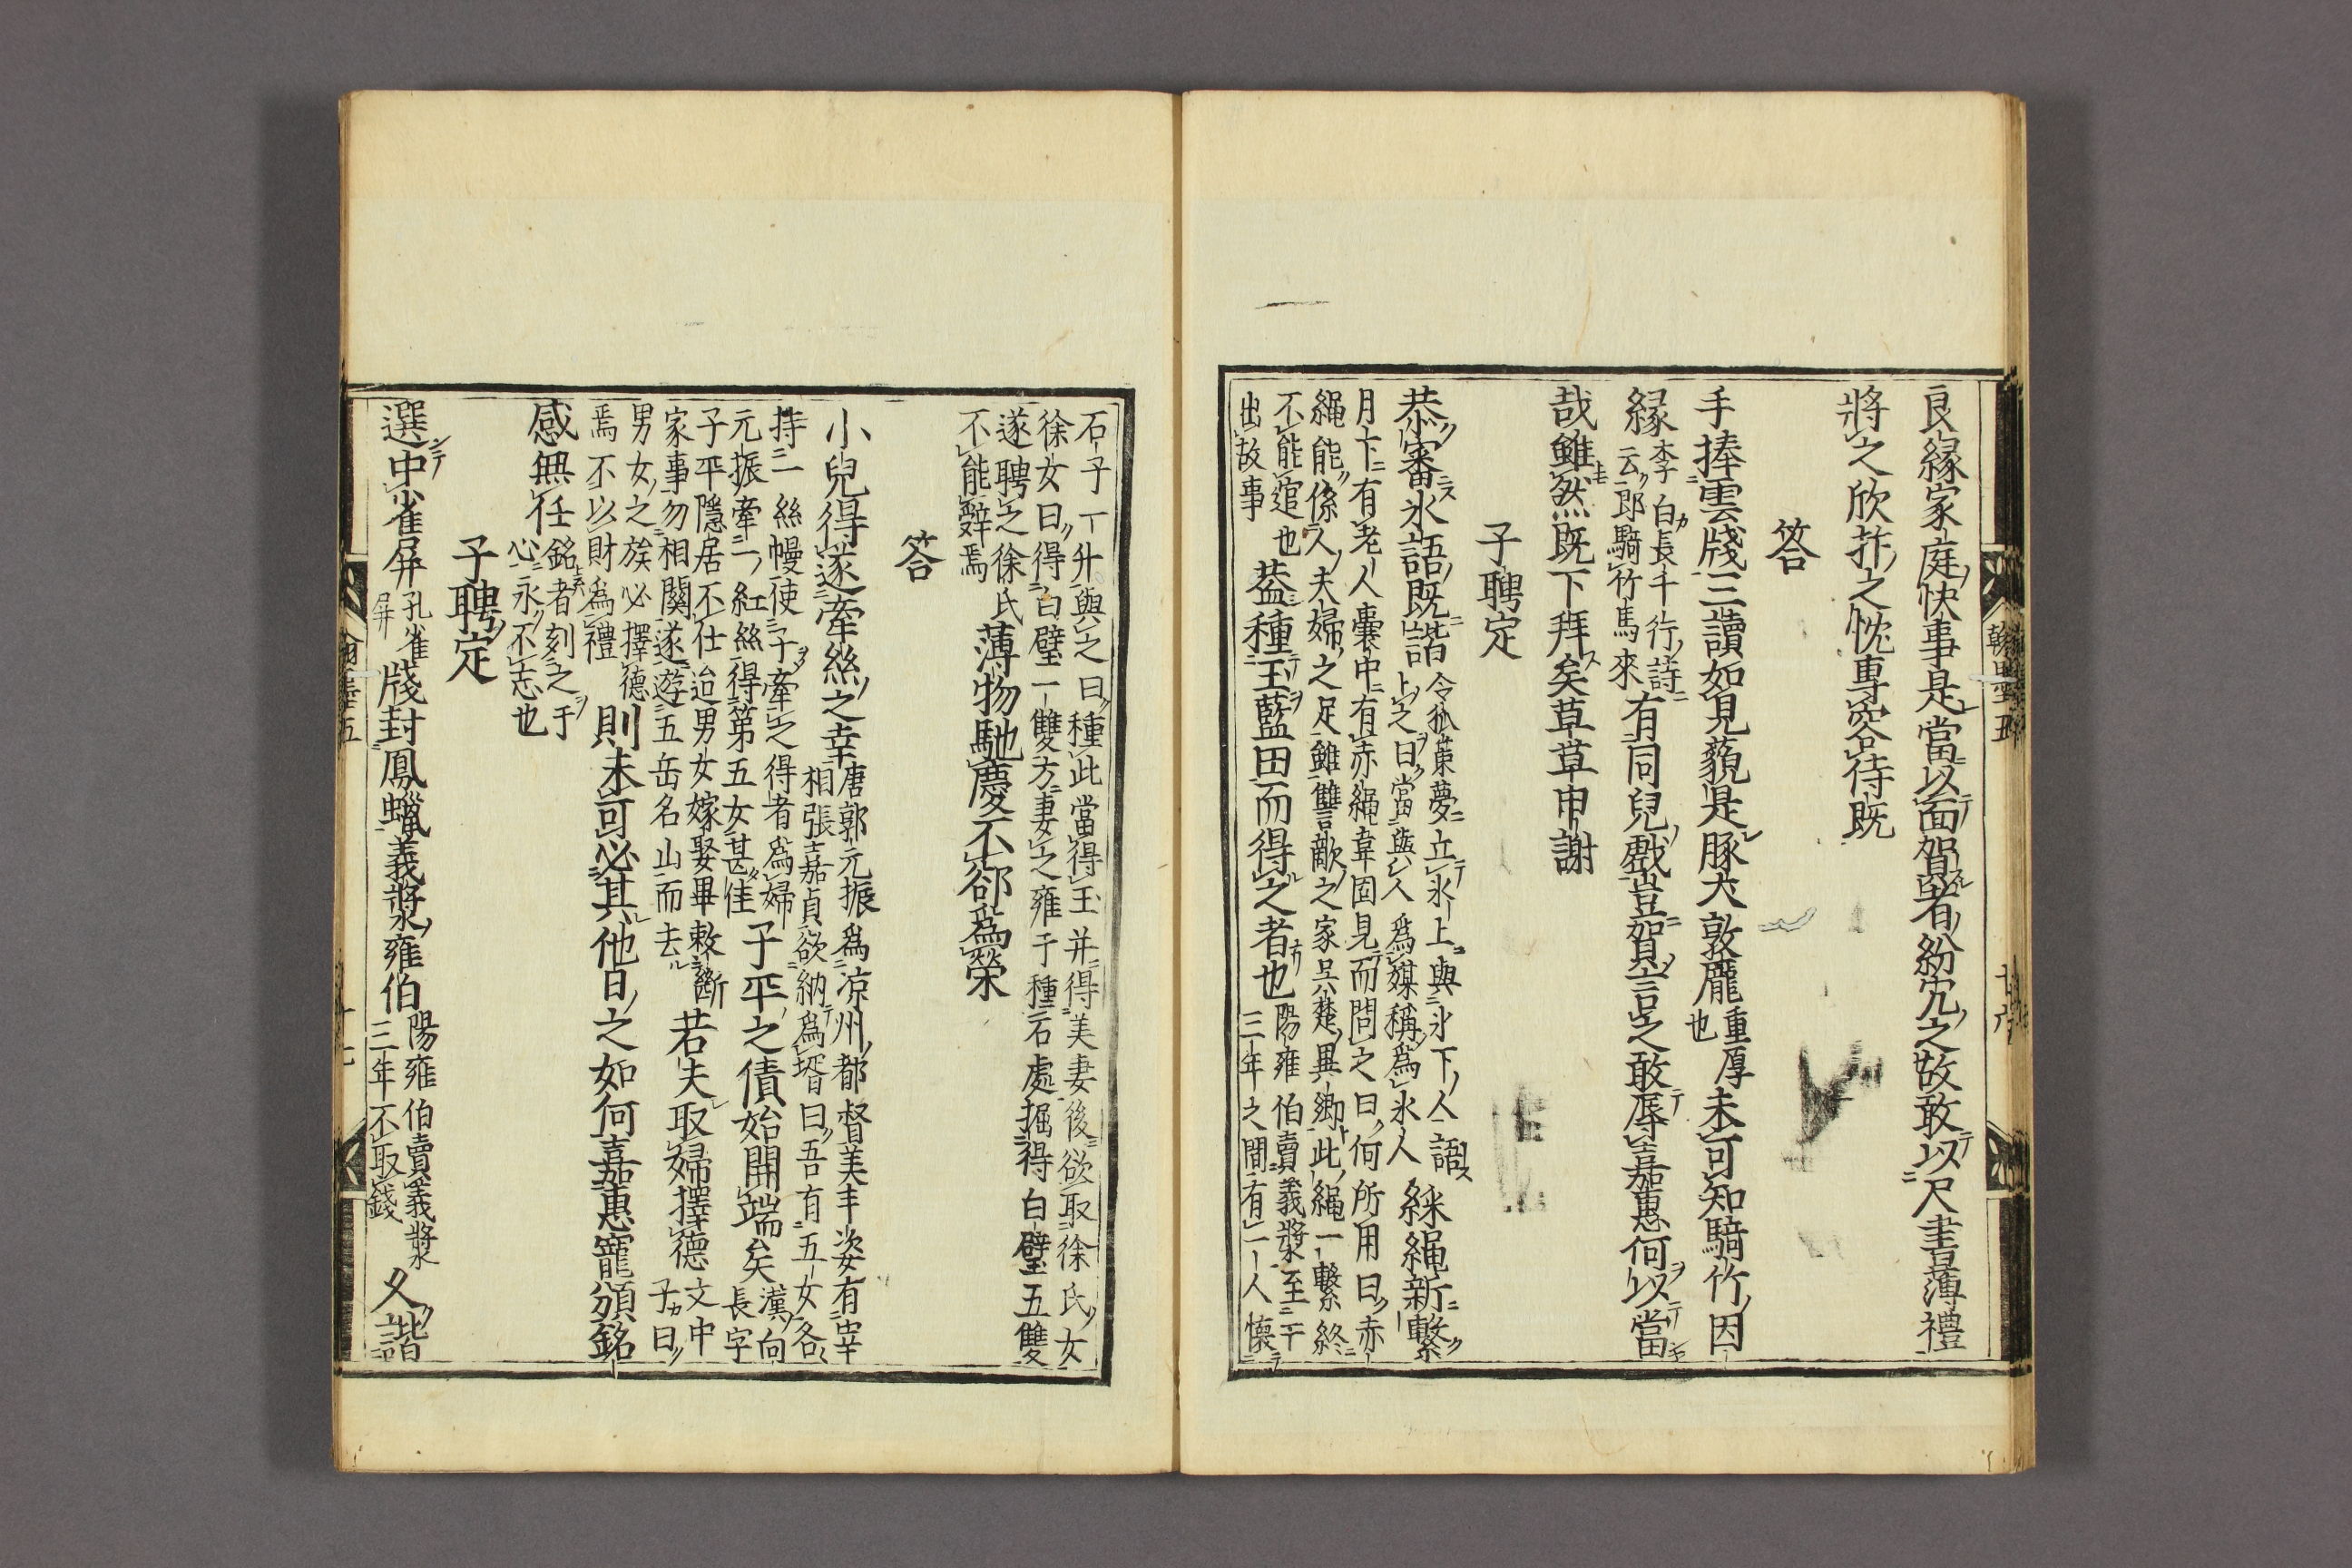 良緣家庭快事是當以面賀者紛冗之故敢以尺書薄禮
將之欣抃之忱專容待既
答
手捧雲牋三讀如見藐是豚犬敦龐
重厚
也
未可知騎竹因
緣
李白長千行詩
云郎騎竹馬來
有同兒戲豈賀言之敢辱嘉惠何以當
哉雖然既下拜矣草草申謝
子聘定
恭審氷語既諧
令狐策夢立氷上與氷下人語
上之曰當與人爲媒稱爲氷人
綵繩新繫
月下有老人囊中有赤繩韋固見而問之曰何所用曰赤
繩能係人夫婦之足雖讐敵之家吳楚異鄉此繩一繫終
不能逭也
出故事
葢種玉藍田而得之者也
陽雍伯賣義漿至于
三年之間有一人懷
石子一升與之曰種此當得玉并得美妻後欲取徐氏女
徐女曰得白璧一雙方妻之雍于種石處掘得白璧五雙
遂聘之徐氏
不能辭焉
薄物馳慶不郤爲榮
答
小兒得遂牽絲之幸
唐郭元振爲凉州都督美丰姿有宰
相張嘉貞欲納爲壻曰吾有五女各
持一絲幔使子牽之得者爲婦
元振牽一紅絲得第五女甚佳
子平之債始開端矣
漢向
長字
子平隱居不仕迨男女嫁娶畢敕斷
家事勿相關遂遊五岳名山而去
若夫取婦擇德
文中
子曰
男女之族必擇德
焉不以財爲禮
則未可必其他日之如何嘉惠寵頒銘
感無任
銘者刻之于
心永不忘也
子聘定
選中雀屏
孔雀
屏
牋封鳳蠟義漿雍伯
陽雍伯賣義漿
三年不取錢
久諧
翰墨五